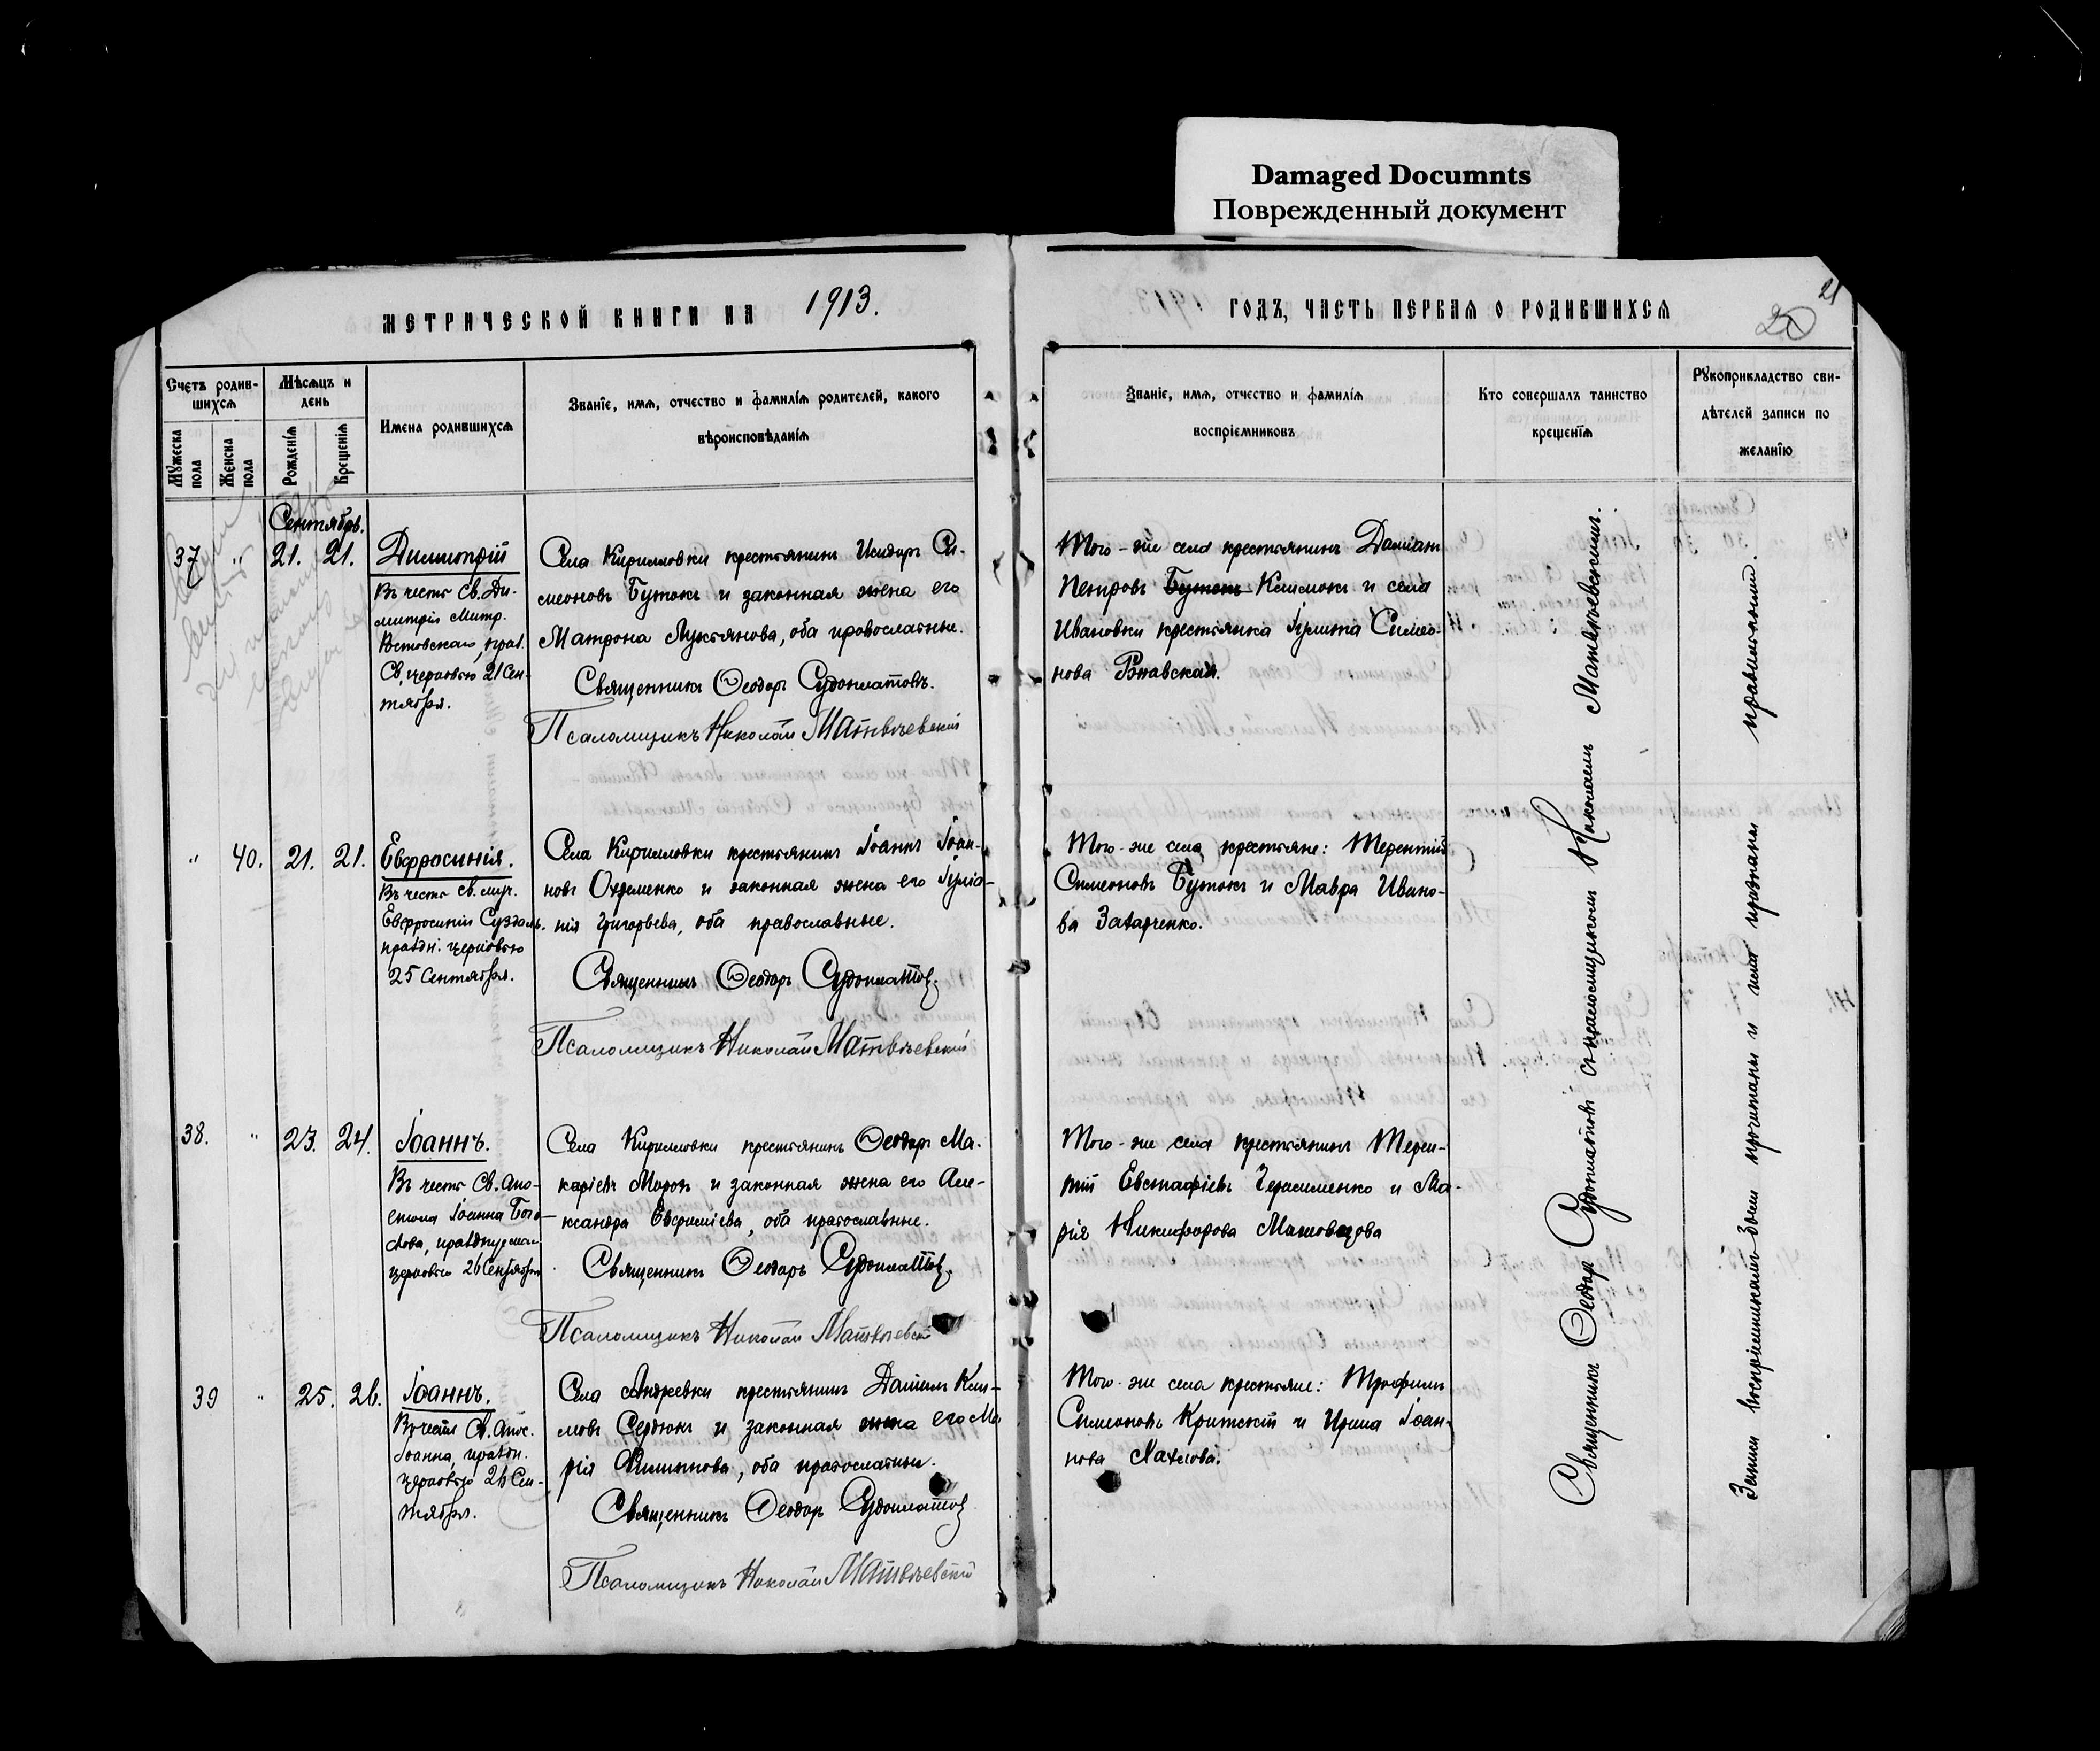 Damaged Documnts
Поврежденный документ
МЕТРИЧЕСКОЙ КНИГИ НА 1913.
ГОДЪ, ЧАСТЬ ПЕРВАЯ О РОДИВШИХСЯ
21
20
Счетъ родив-
шихся
Мужеска
пола
Женска
пола
Мѣсяцъ и
день
Рожденія
Крещенія
Имена родившихся
Званіе, имя, отчество и фамилія родителей, какого
вѣроисповѣданія
Званіе, имя, отчество и фамилія
воспріемниковъ
Кто совершалъ таинство
крещенія
Рукоприкладство сви-
дѣтелей записи по
желанію
Сентябрь.
37 " 21. 21.
Димитрій
Въ честь Св. Ди-
митрія Митр.
Ростовскаго, празд.
Св. церковью 21 Сен-
тября.
Села Кирилловки крестьянинъ Исидоръ Си-
меоновъ Бутокъ и законная жена его
Матрона Лукіянова, оба православные.
Священникъ Ѳеодоръ Судоплатовъ.
Псаломщикъ Николай Матвѣевскій
Того-же села крестьянинъ Даміанъ
Петровъ Бутокъ Климокъ и села
Ивановки крестьянка Іулита Симео-
нова Ржавская.
" 40. 21. 21.
Евфросинія.
Въ честь св. муч.
Евфросиніи Суздаль.
праздн. церковью
25 Сентября.
Села Кирилловки крестьянинъ Іоаннъ Іоан-
новъ и законная жена его Іулiа-
нія Григорьева, оба православные.
Священникъ Ѳеодоръ Судоплатовъ.
Псаломщикъ Николай Матвѣевскій
Того-же села крестьяне: Терентій
Симеоновъ Бутокъ и Мавра Ивано-
ва Захарченко.
38. " 23. 24.
Іоаннъ.
Въ честь Св. Апо-
стола Іоанна Бого-
слова, празднуемаго
церковью 26 Сентября
Села Кирилловки крестьянинъ Ѳеодоръ Ма-
каріевъ Морозъ и законная жена его Але-
ксандра Евфиміева, оба православные.
Священникъ Ѳеодоръ Судоплатовъ.
Псаломщикъ Николай Матвѣевскій
Того-же села крестьянинъ Терен-
тій Евстафіевъ Герасименко и Ма-
рія Никифорова
39 " 25. 26.
Іоаннъ.
Въ честь Св. Апос.
Іоанна, праздн.
церковью 26 Сен-
тября.
Села Андреевки крестьянинъ Даніилъ Кли-
мовъ Сердюкъ и законная жена его Ма
рія Филиппова, оба православные.
Священникъ Ѳеодоръ Судоплатовъ
Псаломщикъ Николай Матвѣевскій
Того-же села крестьяне: Трофимъ
Симеоновъ Критскій и Ирина Іоан-
нова
Священникъ Ѳеодоръ Судоплатовъ съ псаломщикомъ Николаемъ Матвѣевскимъ.
Записи воспріемникамъ прочитаны и ими признаны правильными.